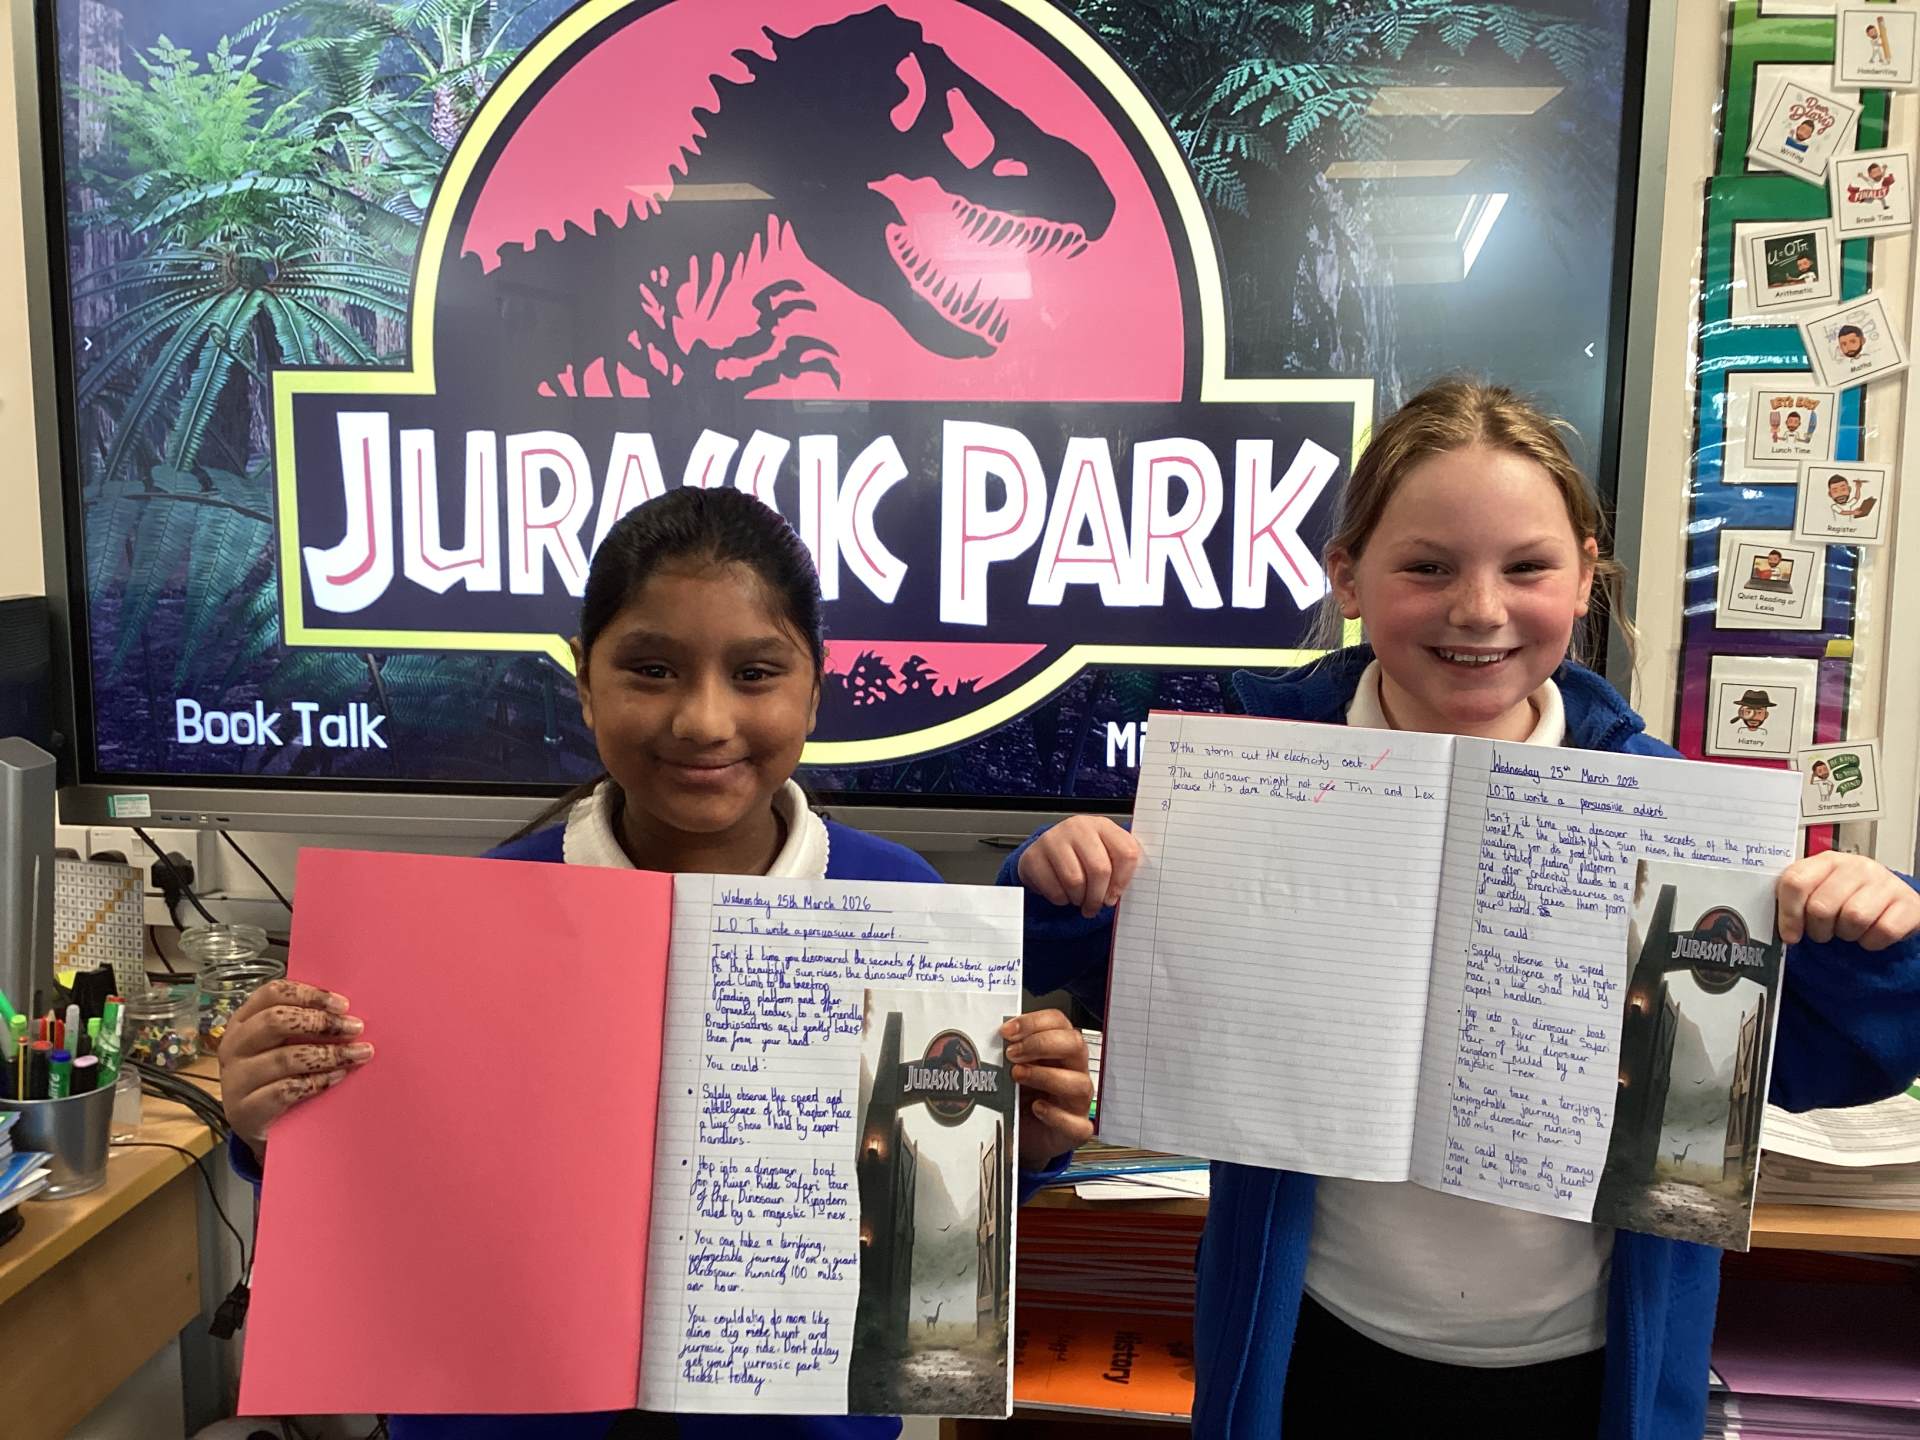 JURASSIC PARK
Book Talk
Mi
Handwriting
Dear Diary
Writing
FINALLY
Break Time
Arithmetic
Maths
LET'S EAT
Lunch Time
Register
Quiet Reading or
Lexia
History
BE KIND
Stormbreak
Wednesday 25th March 2026
L.O. To write a persuasive advert.
Isn't it time you discovered the secrets of the prehistoric world?
As the beautiful sun rises, the dinosaur roars waiting for it's
food. Climb to the treetop
feeding platform and offer
crunchy leaves to a friendly
Brachiosaurus as it gently takes
them from your hand.
You could:
• Safely observe the speed and
intelligence of the Raptor Race
a live show held by expert
handlers.
• Hop into a dinosaur boat
for a River Ride Safari tour
of the Dinosaur Kingdom
ruled by a magestic T-rex.
• You can take a terrifying,
unforgetable journey on a giant
Dinosaur running 100 miles
an hour.
You could also do more like
dino dig hunt and
jurrasic jeep ride. Dont delay
get your jurrasic park
ticket today.
JURASSIC PARK
8) the storm cut the electricity out.
7) The dinosaur might not see Tim and Lex
because it is dark outside.
8)
Wednesday 25th March 2026
LO: To write a persuasive advert
Isn't it time you discover the secrets of the prehistoric
world? As the sun rises, the dinosaurs roars
waiting for its food. Climb to
the treetop feeding platform
and offer crunchy leaves to a
friendly Brachiosaurus as
it gently takes them from
your hand.
You could:
• Safely observe the speed
and intelligence of the raptor
race, a live show held by
expert handlers.
• Hop into a dinosaur boat
for a River Ride Safari
Tour of the dinosaur
kingdom ruled by a
majestic T-rex.
• You can take a terrifying,
unforgetable journey on a
giant dinosaur running
100 miles per hour.
You could also do many
more like Dino dig hunt
and a jurrasic jeep
ride
JURASSIC PARK
History